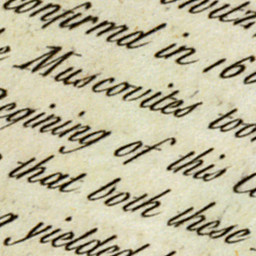 confirmd in 160
Muscovites too
Begining of this
that both these
yielded